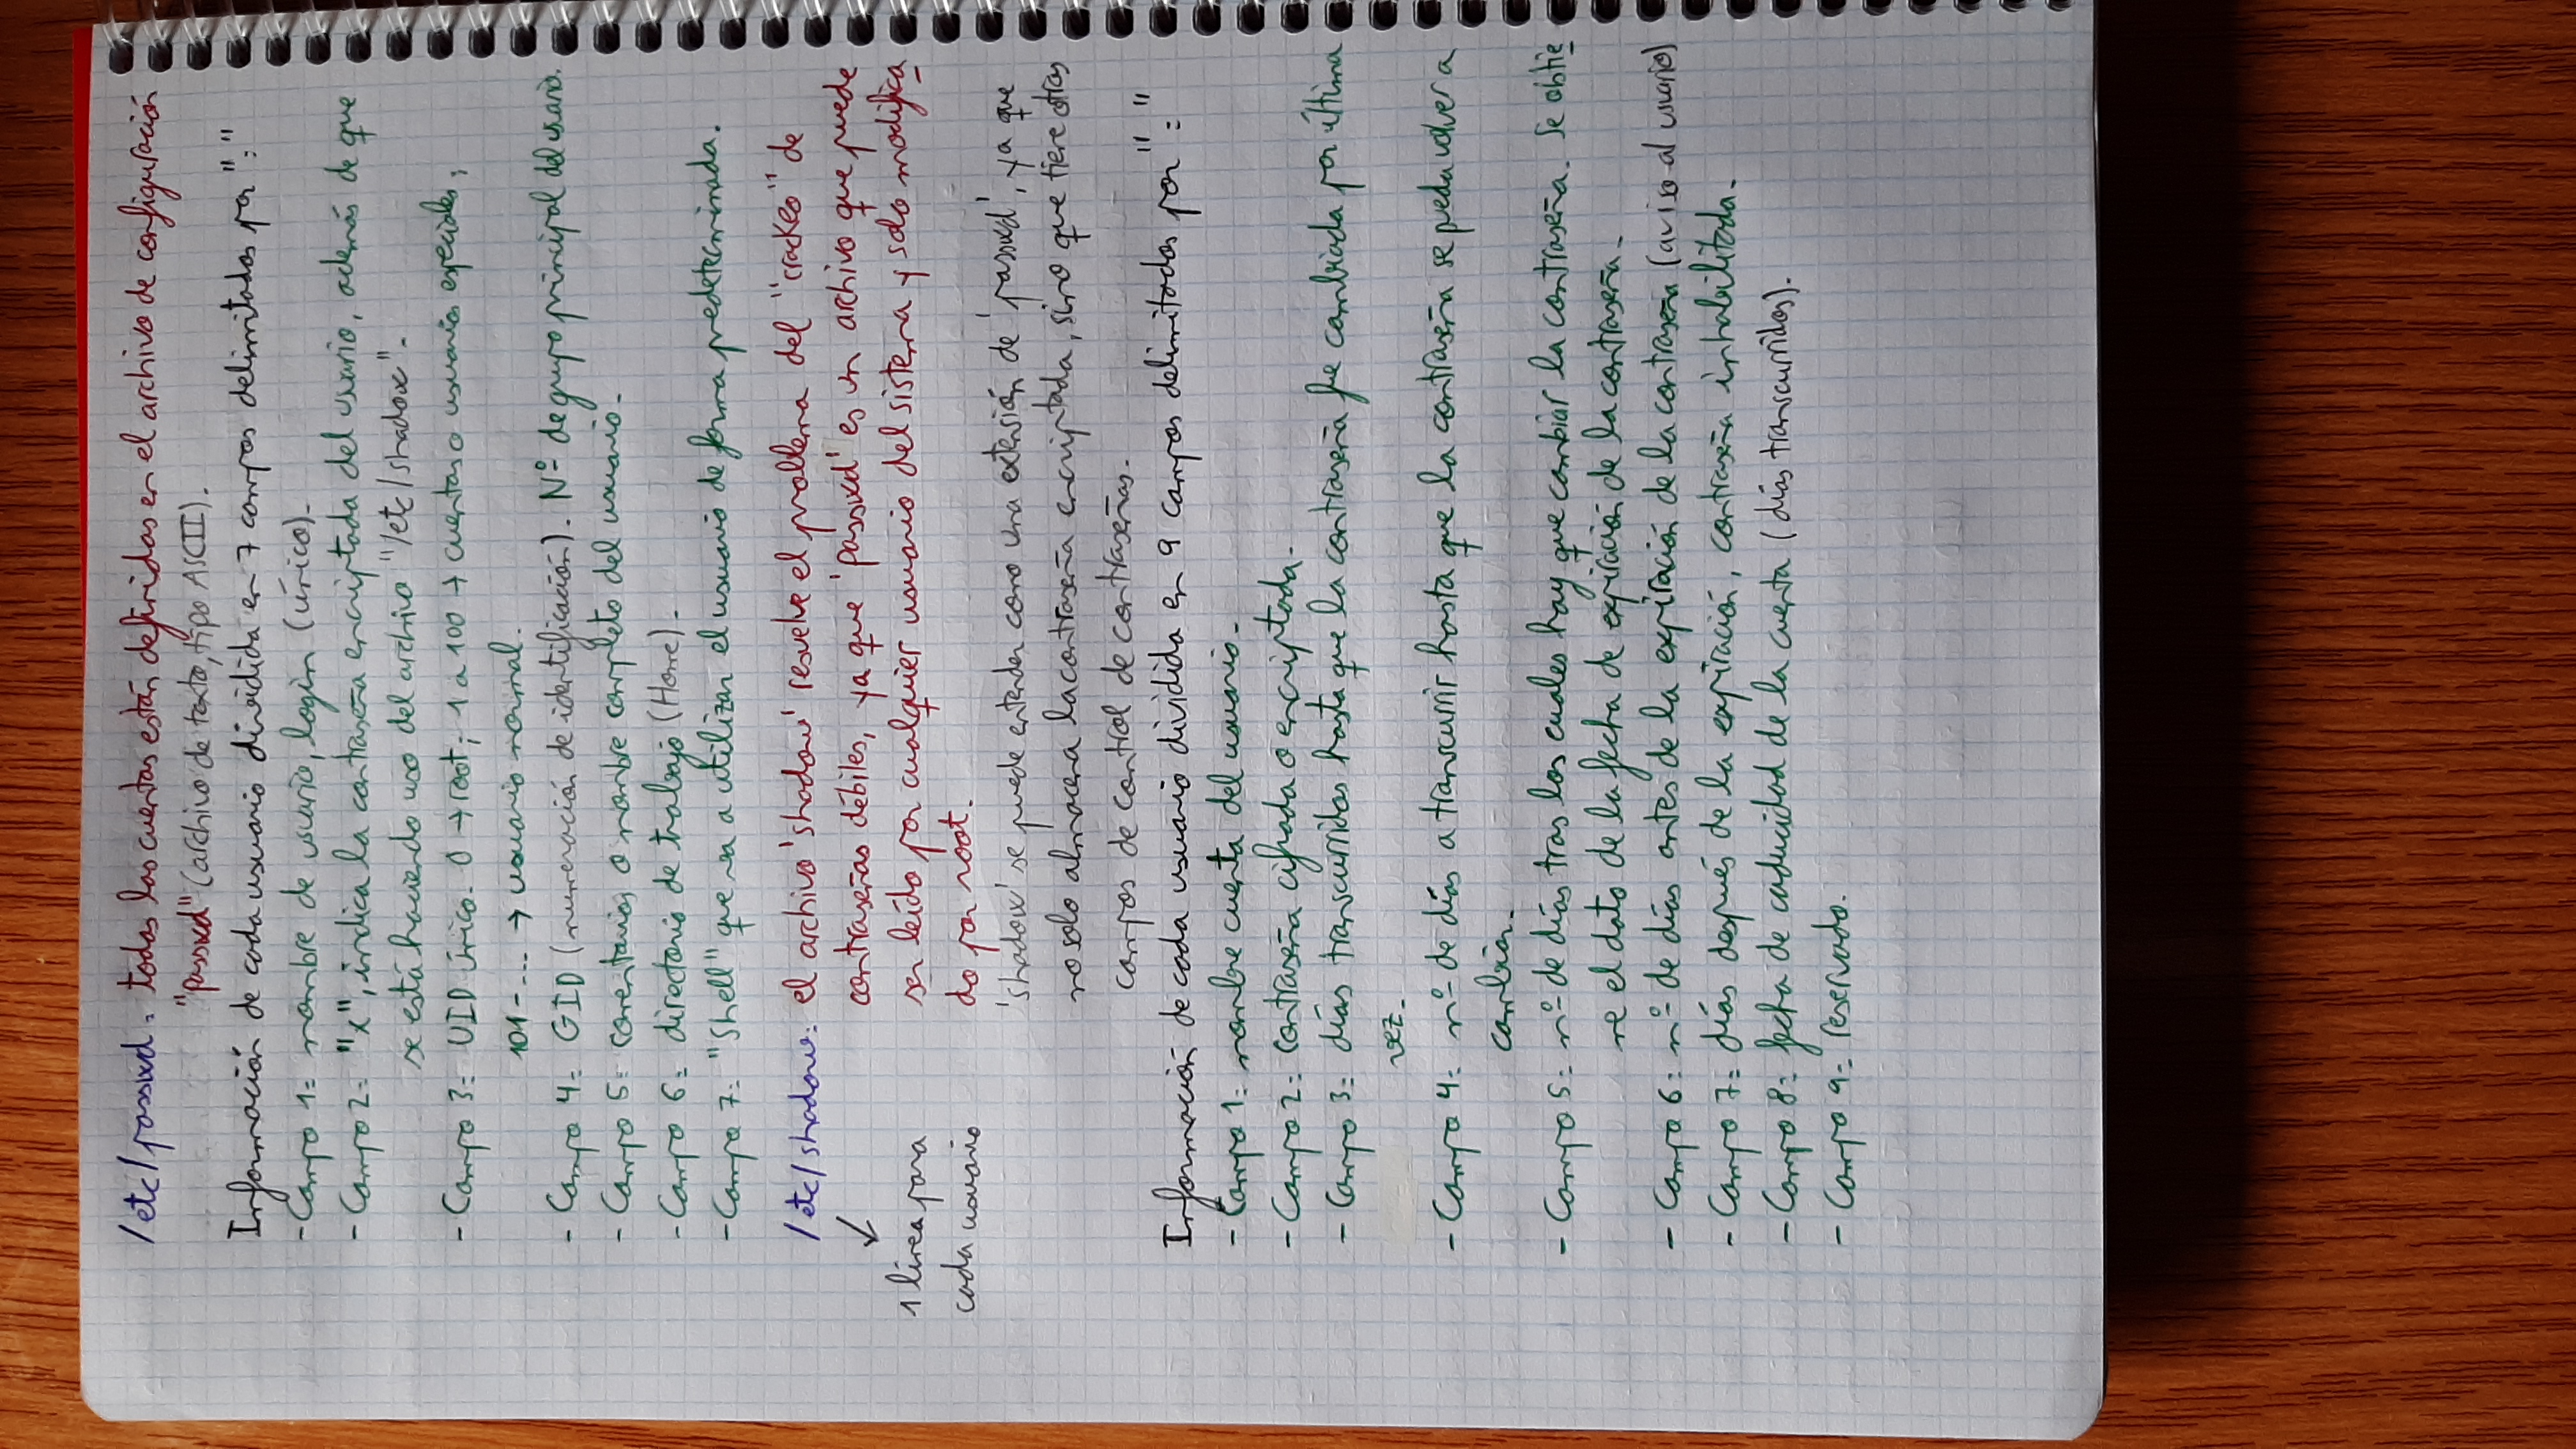 /etc/passwd: todas las cuentas están definidas en el archivo de configuración
"passwd" (archivo de texto, tipo ASCII).
Información de cada usuario dividida en 7 campos delimitados por ":"
- Campo 1: nombre de usuario, login (único).
- Campo 2: "x", indica la contraseña encriptada del usuario, además de que
se está haciendo uso del archivo "/etc/shadow".
- Campo 3: UID único. 0 → root; 1 a 100 → cuentas o usuarios especiales;
101 - ... → usuario normal.
- Campo 4: GID (numeración de identificación). Nº de grupo principal del usuario.
- Campo 5: comentarios o nombre completo del usuario.
- Campo 6: directorio de trabajo (Home).
- Campo 7: "Shell" que va a utilizar el usuario de forma predeterminada.
/etc/shadow: el archivo 'shadow' resuelve el problema del "crackeo" de
contraseñas débiles, ya que 'passwd' es un archivo que puede
1 línea para
ser leído por cualquier usuario del sistema y solo modifica
cada usuario
do por root.
'shadow' se puede entender como una extensión de 'passwd', ya que
no solo almacena la contraseña encriptada, sino que tiene otros
campos de control de contraseñas.
Información de cada usuario dividida en 9 campos delimitados por ":"
- Campo 1: nombre cuenta del usuario.
- Campo 2: contraseña cifrada o encriptada.
- Campo 3: días transcurridos hasta que la contraseña fue cambiada por última
vez.
- Campo 4: nº de días a transcurrir hasta que la contraseña se pueda volver a
cambiar.
- Campo 5: nº de días tras los cuales hay que cambiar la contraseña. Se obtie
ne el dato de la fecha de expiración de la contraseña.
- Campo 6: nº de días antes de la expiración de la contraseña (aviso al usuario)
- Campo 7: días después de la expiración, contraseña inhabilitada.
- Campo 8: fecha de caducidad de la cuenta (días transcurridos).
- Campo 9: reservado.